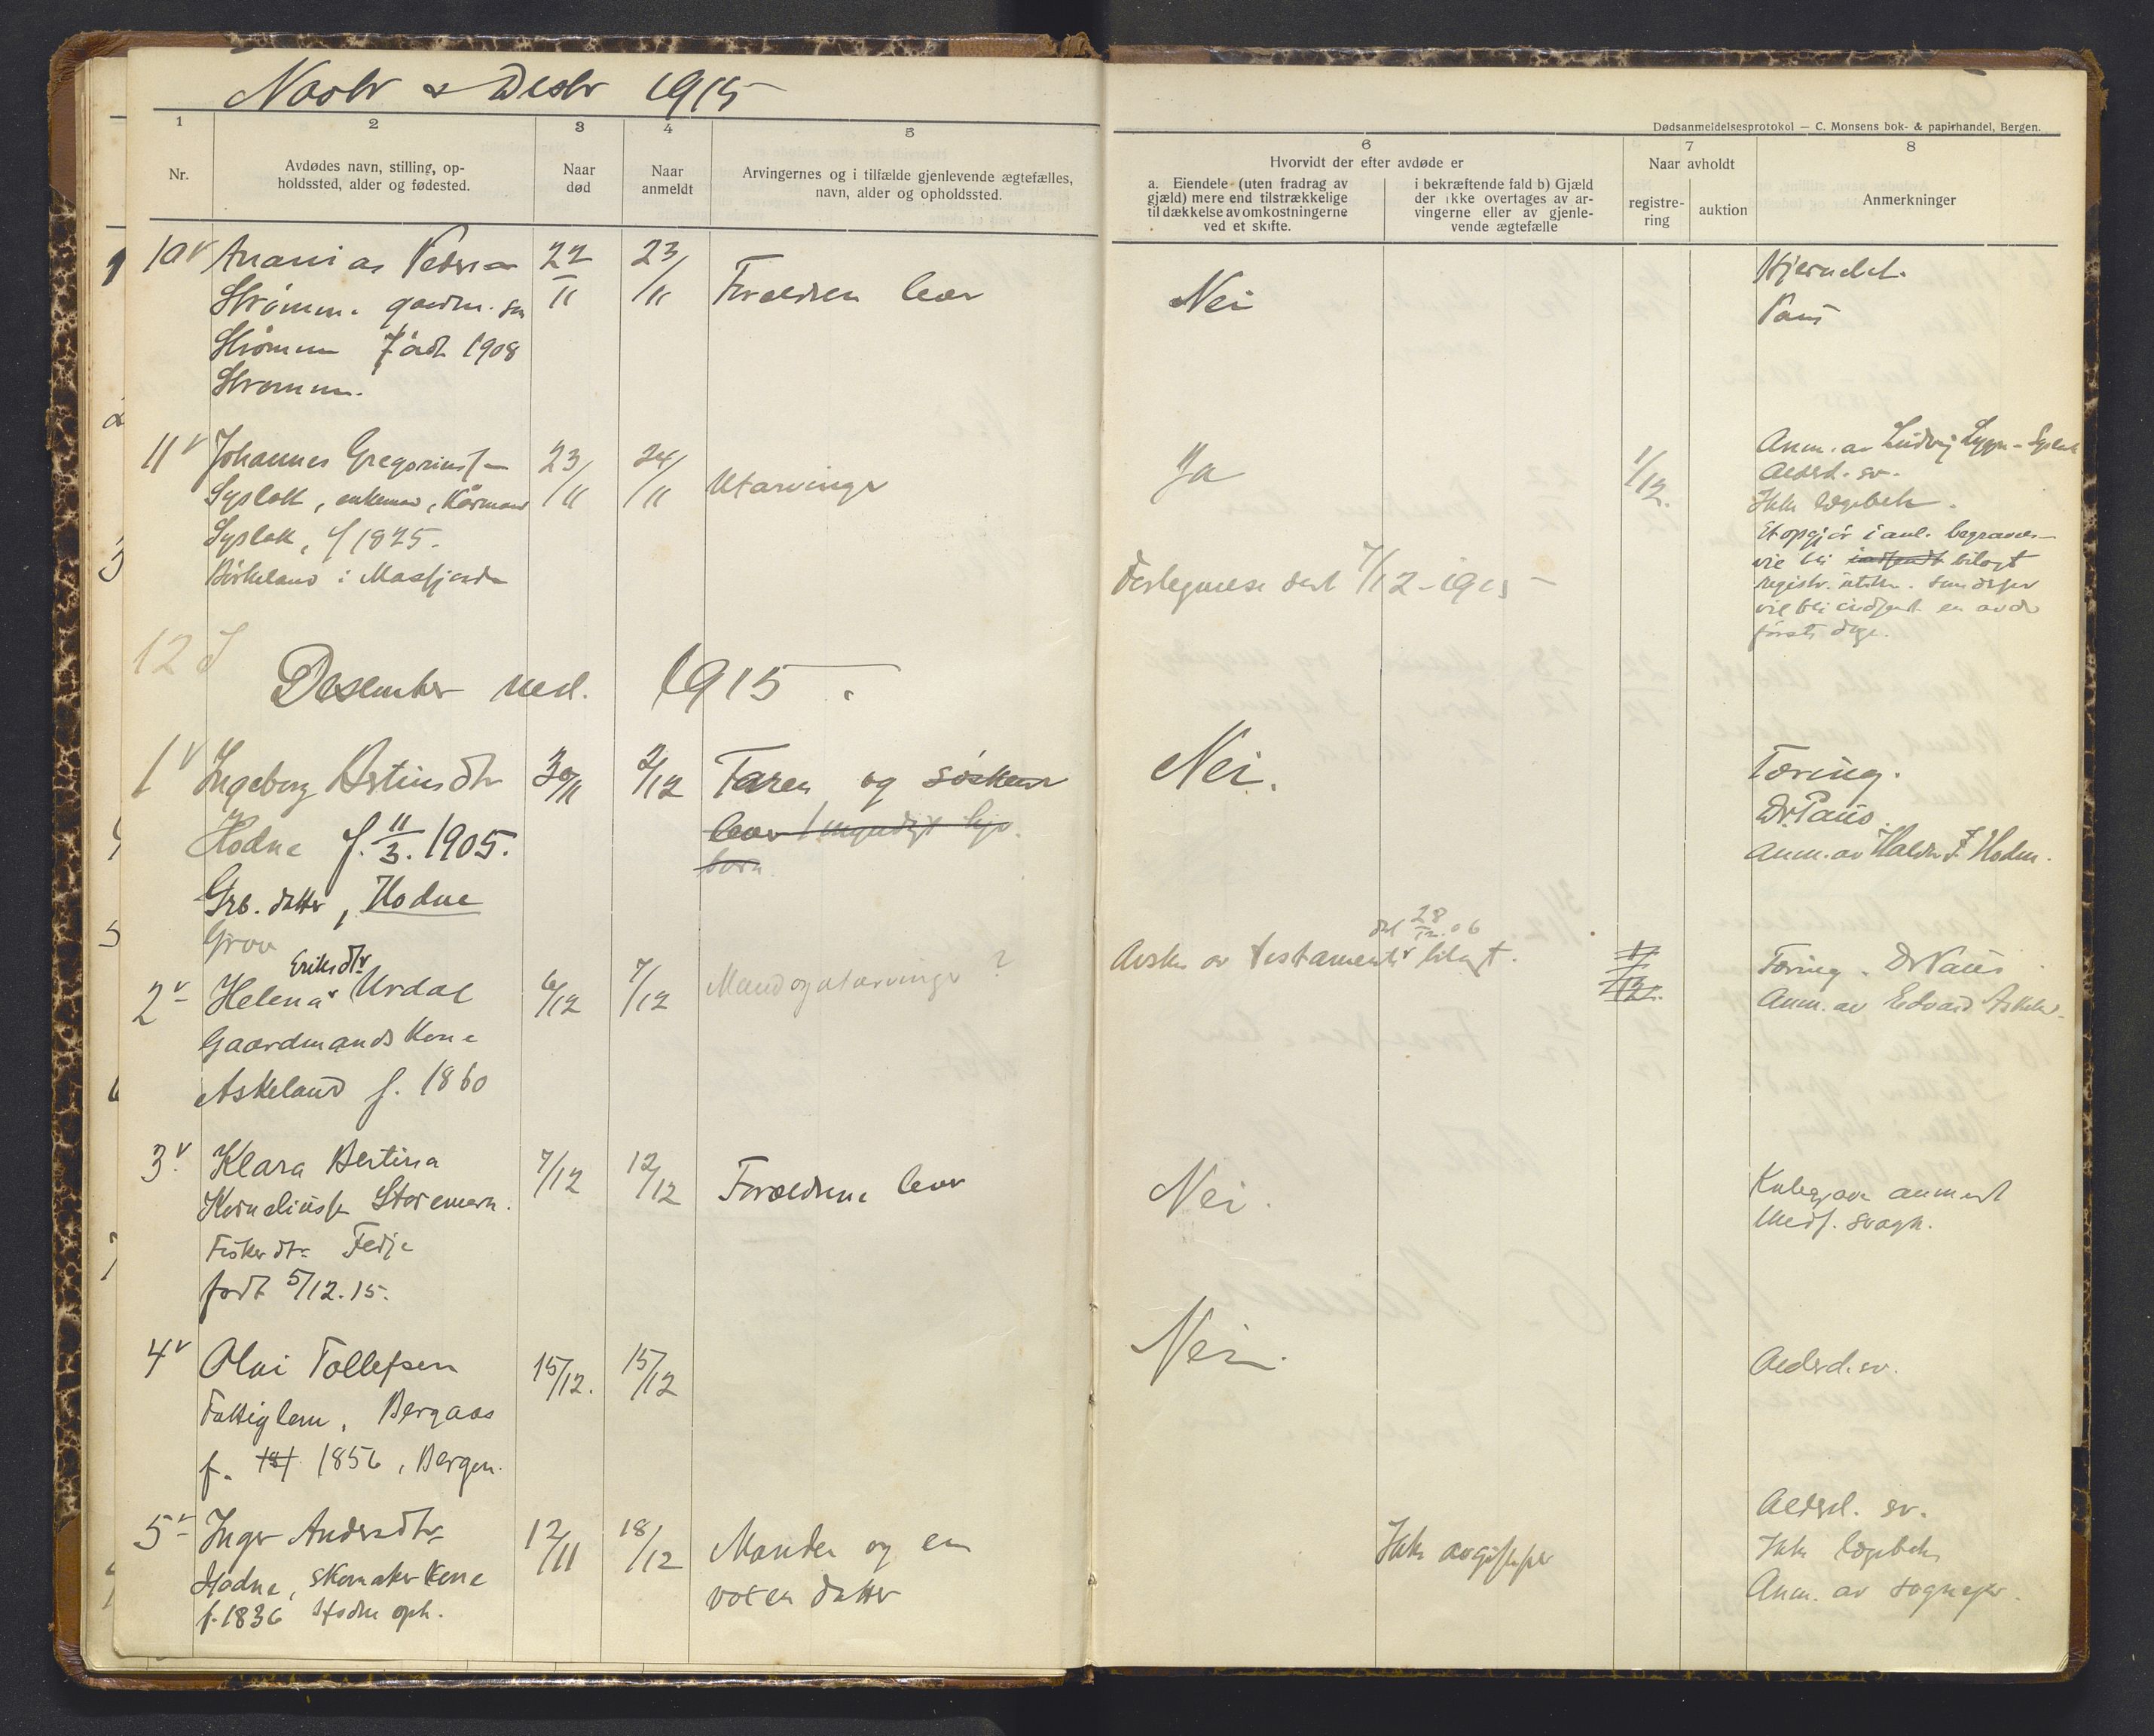 Novbr & Desbr 1915
Dødsanmeldelsesprotokol — C. Monsens bok- & papirhandel, Bergen.
1 2 3 4 5 6 7 8
Nr.
Avdødes navn, stilling, op-
holdssted, alder og fødested.
Naar
død
Naar
anmeldt
Arvingernes og i tilfælde gjenlevende ægtefælles,
navn, alder og opholdssted.
Hvorvidt der efter avdøde er
a. Eiendele (uten fradrag av
gjæld) mere end tilstrækkelige
til dækkelse av omkostningerne
ved et skifte.
i bekræftende fald b) Gjæld
der ikke overtages av ar-
vingerne eller av gjenle-
vende ægtefælle
Naar avholdt
registre-
ring
auktion
Anmerkninger
10 v Ananias Pedersen 22/11 23/11 Forældren lever Nei
Strømme. gaardm. søn
Strømme født 1908
Strømme.
Hjernebet.
Paus
11 v Johannes Gregoriuss 23/11 24/11 Utarvinger Ja 1/12.
Syslak, enkemand, Kårmand
Syslak, f 1825.
Birkeland i Masfjorden
Anm. av Ludvig
Alderd. sv.
Ikke lægebeh.
Et opgjør i anl. begravelse
vil bli indsendt bilagt
registr. utskr.
vil bli indsendt en av de
første dage.
Forlegnelse dat 7/12-1915
12
Desember med. 1915.
1 v Ingeborg Bertinsdtr 30/11 2/12 Faren og søsken Nei.
Hodne f. 11/3. 1905.
lever 1 myndigt
børn
Grb. datter, Hodne
Tæring.
Dr Paus.
Anm. av Halvor J. Hodne.
Grov
Eriksdtr
2 v Helena Urdal 6/12 7/12 Mand og utarvinger ?
Gaardmands Kone
Askeland f. 1860
dat 28/12.06
Avskr av testamente bilagt.
Tæring. Dr Paus
Anm. av Edvard Askeland
3 v Klara Bertina 7/12 12/12 Forældrene lever Nei.
Korneliussen Storemark.
Fiskerdtr Fedje
født 5/12.15.
anmeldt
Medf. svagh.
4 v Olai Tollefsen 15/12. 15/12 Nei.
Fattiglem, Bergaas
f. 1856, Bergen.
Alderd. sv.
5 v Inger Andersdtr 12/11 18/12 Manden og en
Hodne, skomaker Kone voxen datter
f. 1836 Hodne oph.
Ikke avgiftspl
Alderd. sv.
Ikke lægebeh
Anm. av sognepr.